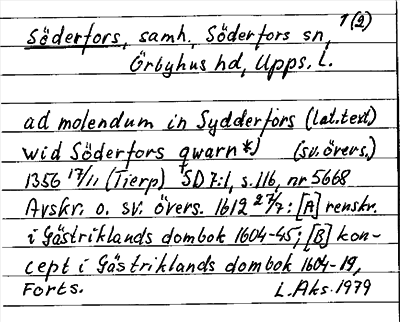 1(2)
Söderfors, samh. Söderfors sn,
Örbyhus hd, Upps. L.
ad molendum in Sydderförs (lat. text)
wid Söderfors qwarn*) (sv. övers.)
1356 17/11 (Tierp) SD 7:1, s. 116, nr 5668
Avskr. o. sv. övers. 1612 27/7: [A] renskr.
i Gästriklands dombok 1604-45; [B] kon-
cept i Gästriklands dombok 1604-19,
Forts. L. Aks. 1979